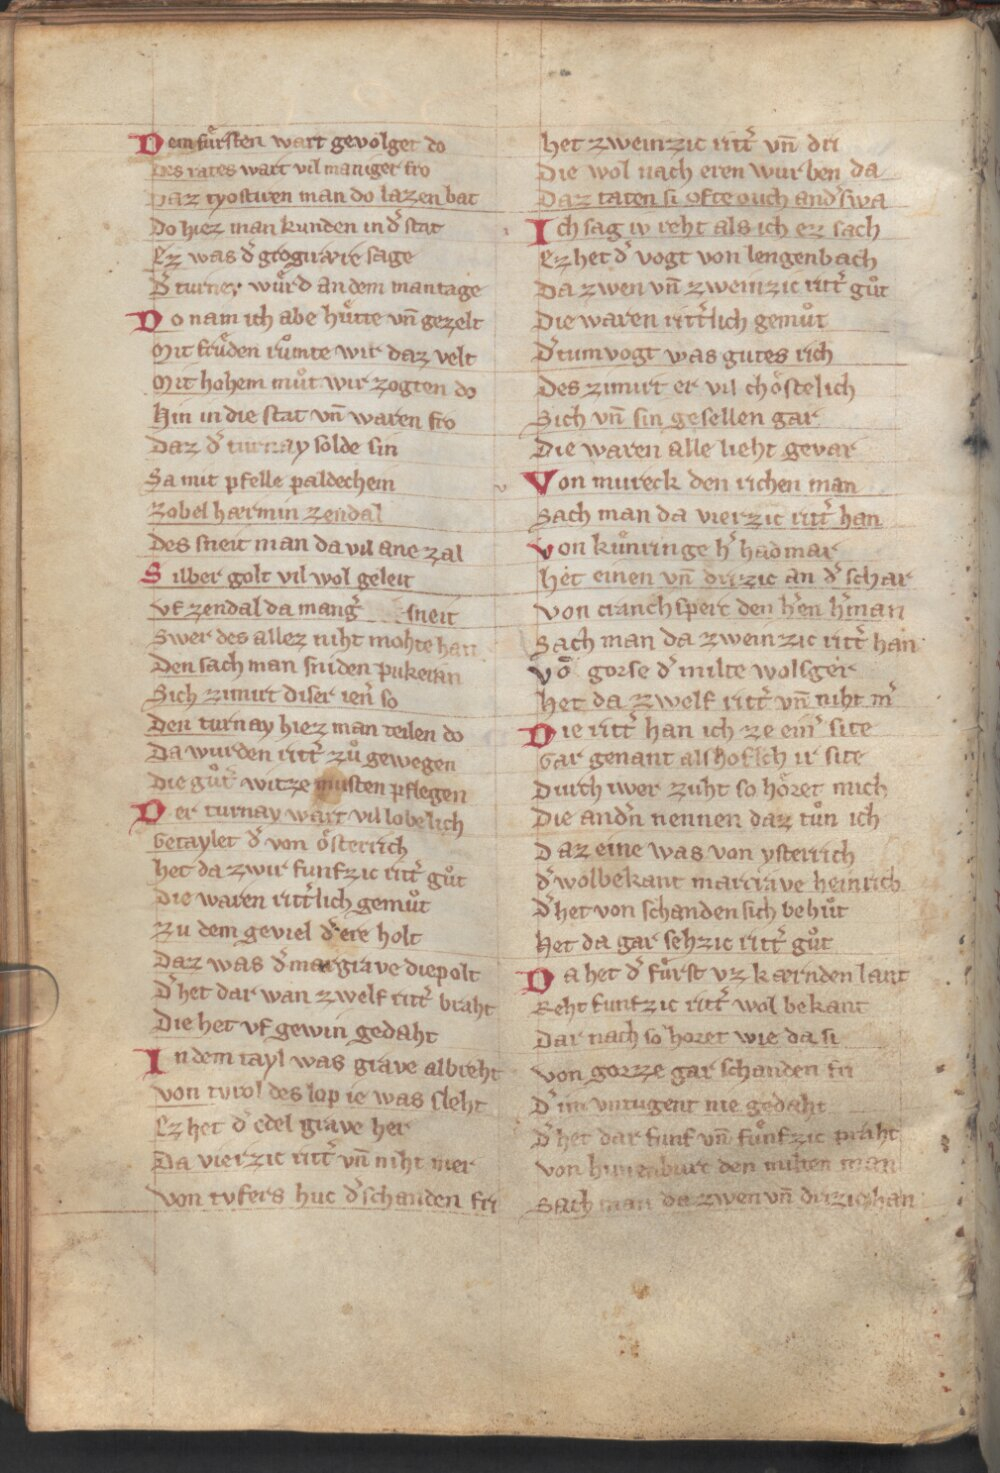 Dem fuͤrsten wart gevolget do
Des rates wart vil maniger fro
Daz tyostiren man do lazen bat
Do hiez man kunden in dˀ stat
Ez was dˀ grogirære sage
Dˀ turney wuͤrd an dem mantage
Do nam ich abe huͤtte vn̄ gezelt
Mit freuͤden ruͦmte wir daz velt
Mit hohem muͦt wir zogten do
Hin in die stat vn̄ waren fro
Daz dˀ turnay solde sin
Samit pfelle paldechein
Zobel hærmin zendal
Des sneit man da vil ane zal
Silber golt vil wol geleit
Vf zendal da mangˀ sneit
Swer des allez niht mohte han
Den sach man sniden pukeran
Sich zimirt diser ienˀ so
Den turnay hiez man teilen do
Da wurden rittˀ zuͦ gewegen
Die guͦtˀ witze musten pflegen
Der turnay wart vil lobelich
Getaylet dˀ von oͤsterrich
Het da zwir funfzic rittˀ guͦt
Die waren rittˀlich gemuͦt
Zu dem geviel dˀ ere holt
Daz was dˀ margrave diepolt
Dˀ het dar wan zwelf rittˀ braht
Die het vf gewin gedaht
In dem tayl was grave albreht
Von tyrol des lop ie was sleht
Ez het dˀ edel grave her
Da vierzic rittˀ vn̄ niht mer
Von tvfers huc dˀ schanden fri
Het zweinzic rittˀ vn̄ dri
Die wol nach eren wurben da
Daz taten si ofte ouch andˀswa
Ich sag iv reht als ich ez sach
Ez het dˀ vogt von lengenbach
Da zwen vn̄ zweinzic rittˀ guͦt
Die waren rittˀlich gemuͦt
Dˀ tumvogt was gutes rich
Des zimirt er vil choͤstelich
Sich vn̄ sin gesellen gar
Die waren alle lieht gevar
Von mureck den richen man
Sach man da vierzic rittˀ han
Von kuͦnringe hˀ hadmar
Het einen vn̄ drizic an dˀ schar
Von cranchsperc den hˀen hˀman
Sach man da zweinzic rittˀ han
Voͦ gorse dˀ milte wolfger
Het da zwelf rittˀ vn̄ niht mˀ
Die rittˀ han ich ze einˀ site
Gar genant als hoflich ir site
Durch iwer zuht so hoͤret mich
Die andˀn nennen daz tuͦn ich
Daz eine was von ysterrich
Dˀ wolbekant marcrave heinrich
Dˀ het von schanden sich behuͦt
Het da gar sehzic rittˀ guͦt
Da het dˀ fuͤrst vz kærnden lant
Reht funfzic rittˀ wol bekant
Dar nach so horet wie da si
Von gorze gar schanden fri
Dˀ im vntugent nie gedaht
Dˀ het dar funf vn̄ fuͤnfzic praht
Von hiunenburc den milten man
Sach man da zwen vn̄ drizic han